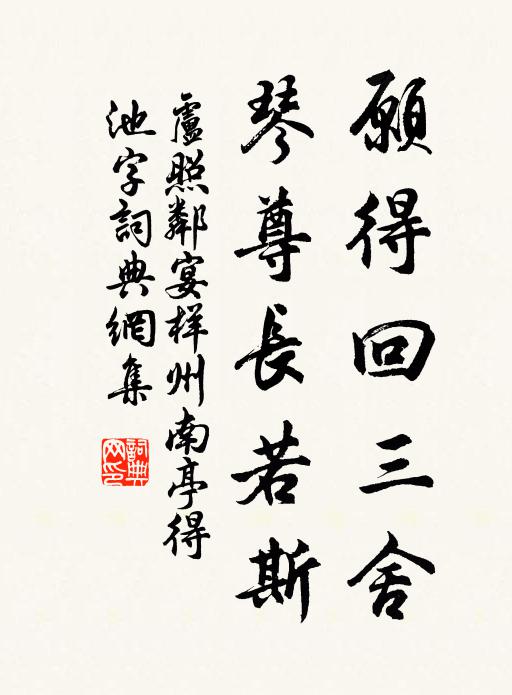 願得回三舍
琴尊長若斯
盧照鄰宴梓州南亭得
池字詞典網集
詞典網印